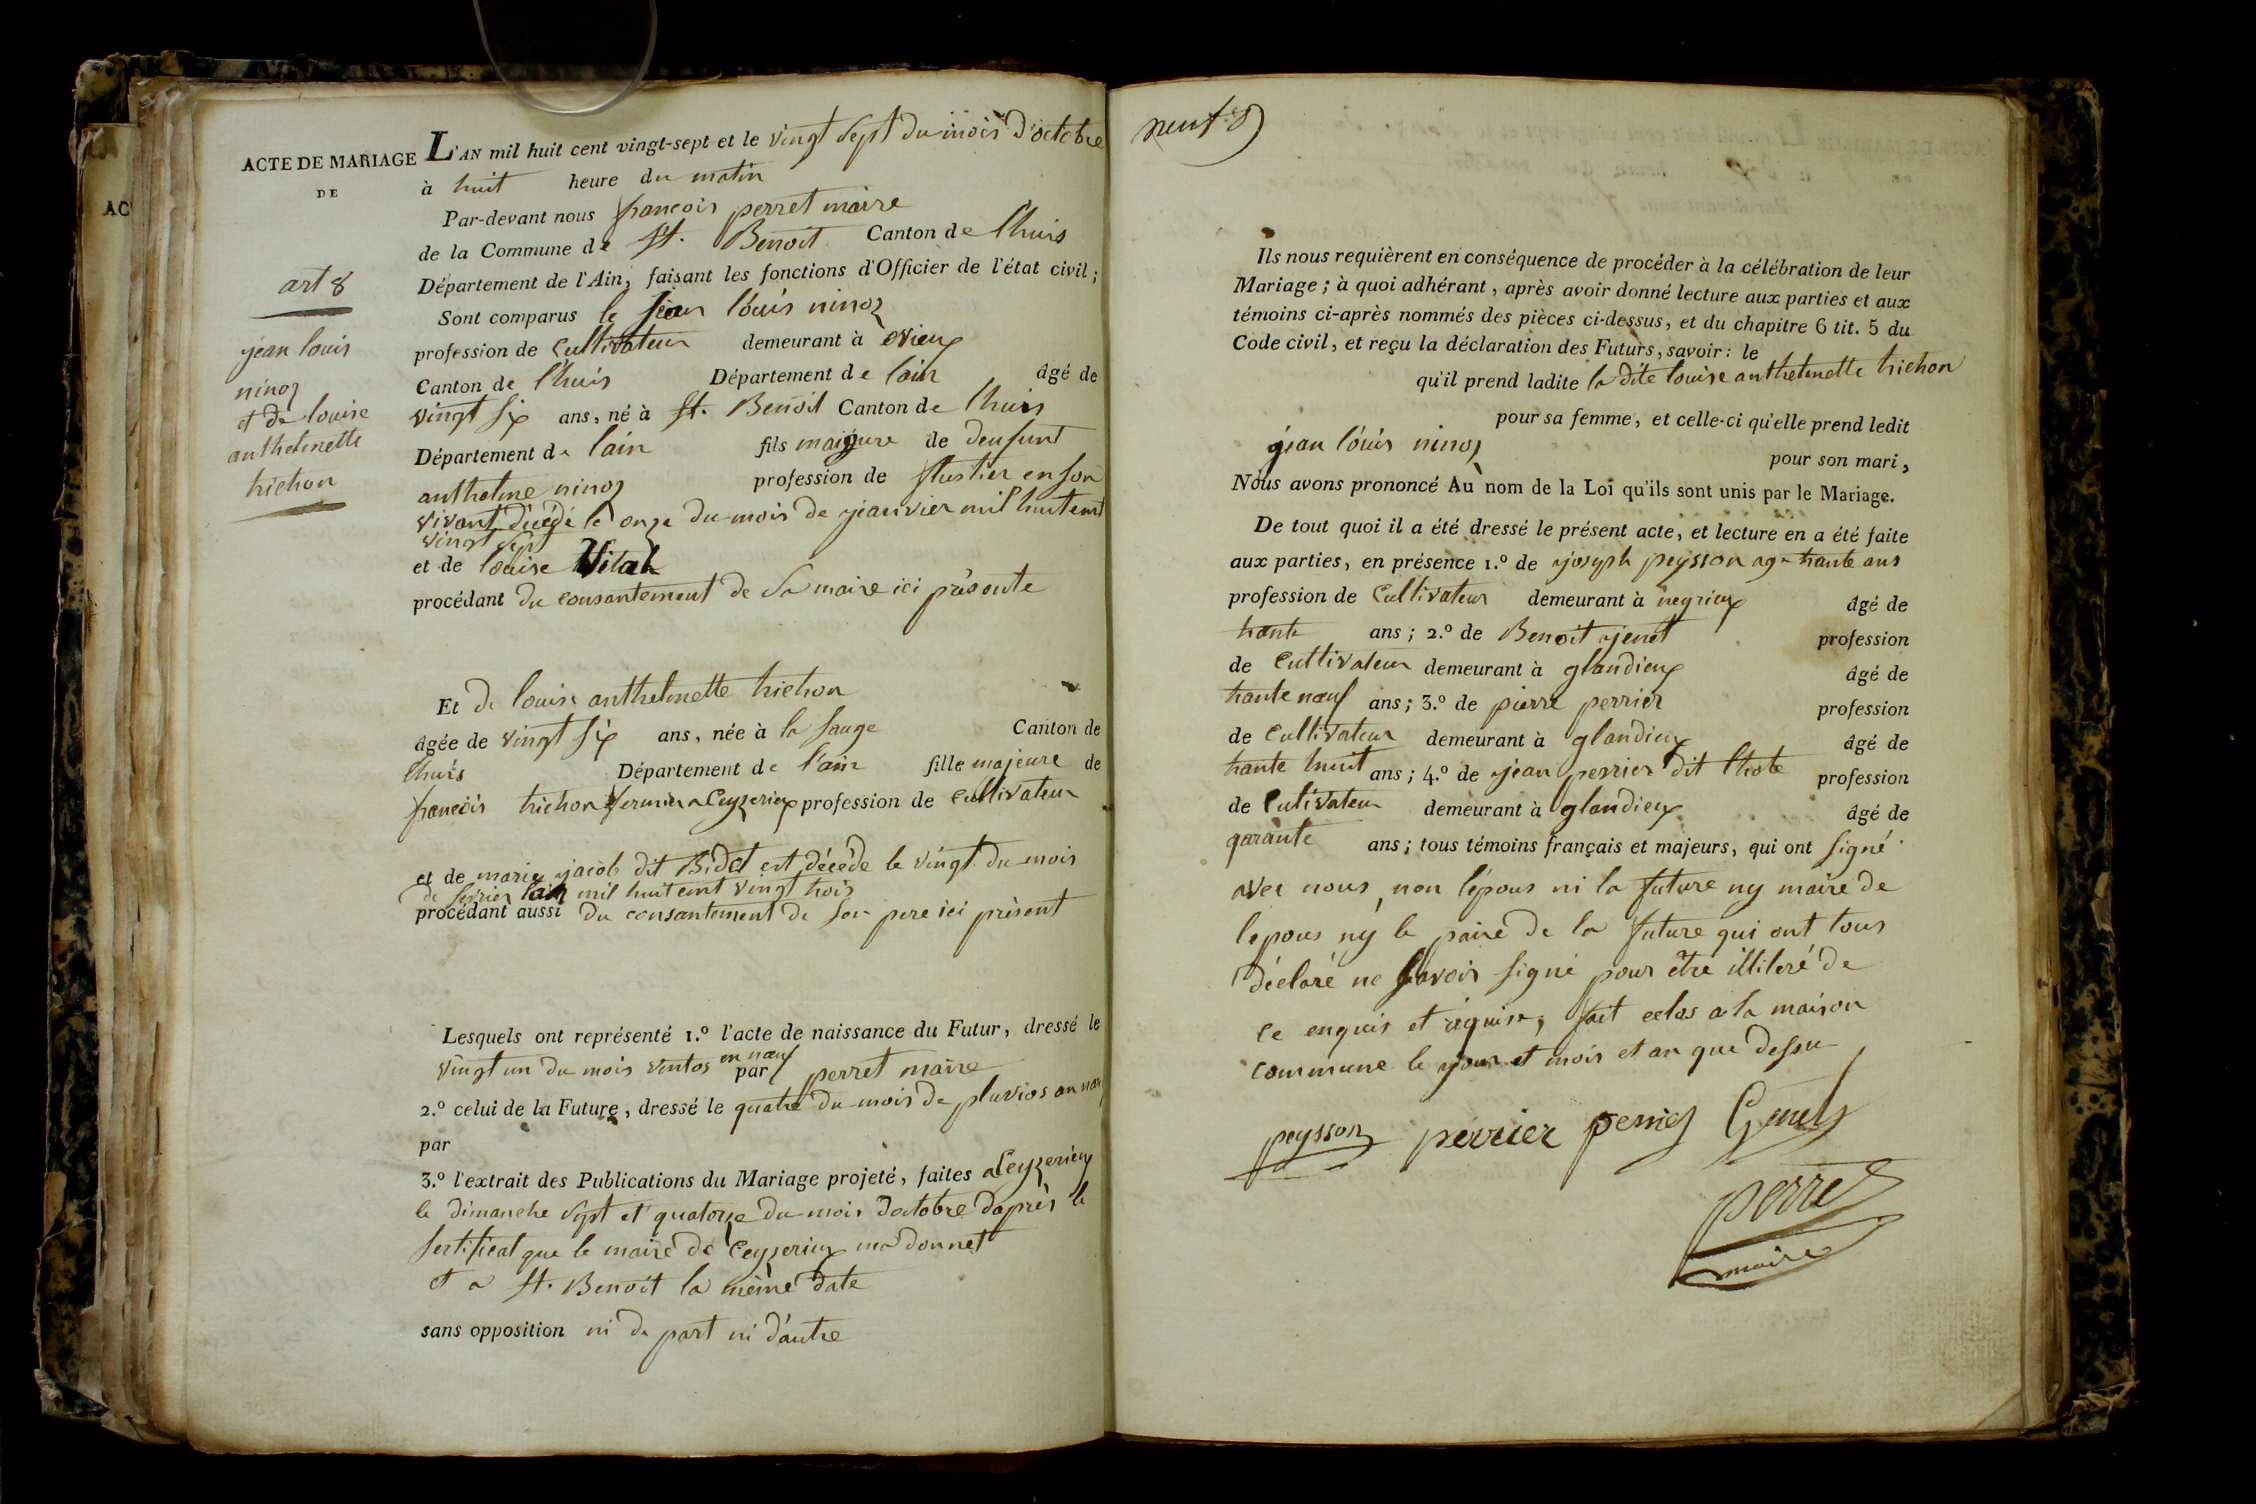 ACTE DE MARIAGE
DE
art 8
jean louis
ninoz
et de louise
anthelmette
trichon
AC
L'AN mil huit cent vingt-sept et le vingt sept du mois d'octobre
à huit heure du matin
Par-devant nous francois perret maire
de la Commune de St. Benoit Canton de lhuis
Département de l'Ain, faisant les fonctions d'Officier de l'état civil;
Sont comparus le jean louis ninoz
profession de cultivateur demeurant à evieux
Canton de lhuis Département de lain âgé de
vingt six ans, né à St. Benoit Canton de lhuis
Département de lain fils majeure de deufunt
anthelme ninoz profession de en son
vivant décédé le onze du mois de jeanvier mil huit cent
vingt sept
et de louise Vital
procédant du consantement de sa maire ici présente
Et de louise anthelmette trichon
âgée de vingt six ans, née à la sauge Canton de
lhuis Département de l'ain fille majeure de
francois trichon fermier a Ceyzerieux profession de cultivateur
et de marie jacob dit Bidet est décéde le vingt du mois
de fevrier lan mil huit cent vingt trois
procédant aussi du consantement de son pere ici présent
Lesquels ont représenté 1.º l'acte de naissance du Futur, dressé le
vingt un du mois ventos en nœuf par perret maire
2.º celui de la Future, dressé le quatre du mois de pluvios an
par
3.º l'extrait des Publications du Mariage projeté, faites a Ceyzerieux
le dimanche sept et quatorze du mois doctobre daprès le
sertifical que le maire de Ceyzerieux ma donnet
et a St. Benoit la même date
sans opposition ni de part ni d'autre
neuf 9
Ils nous requièrent en conséquence de procéder à la célébration de leur
Mariage; à quoi adhérant, après avoir donné lecture aux parties et aux
témoins ci-après nommés des pièces ci-dessus, et du chapitre 6 tit. 5 du
Code civil, et reçu la déclaration des Futurs, savoir: le
qu'il prend ladite la dite louise anthelmette trichon
pour sa femme, et celle-ci qu'elle prend ledit
jean louis ninoz pour son mari,
Nous avons prononcé Au nom de la Loi qu'ils sont unis par le Mariage.
De tout quoi il a été dressé le présent acte, et lecture en a été faite
aux parties, en présence 1.º de joseph peysson age trante ans
profession de cultivateur demeurant à negrieux âgé de
trante ans; 2.º de Benoit jenet profession
de cultivateur demeurant à glandieux âgé de
trante nœuf ans; 3.º de pierre perrier profession
de cultivateur demeurant à glandieux âgé de
trante huit ans; 4.º de jean perrier dit lhote profession
de cultivateur demeurant à glandieux âgé de
qarante ans; tous témoins français et majeurs, qui ont signé
avec nous, non lépous ni la future ny maire de
lepous ny le paire de la future qui ont tous
déclaré ne savoir signé pour être illiteré de
ce enquis et requise, fait eclos a la maison
commune le jour et mois et an que dessu
peysson perrier perrier Genet
perret
maire